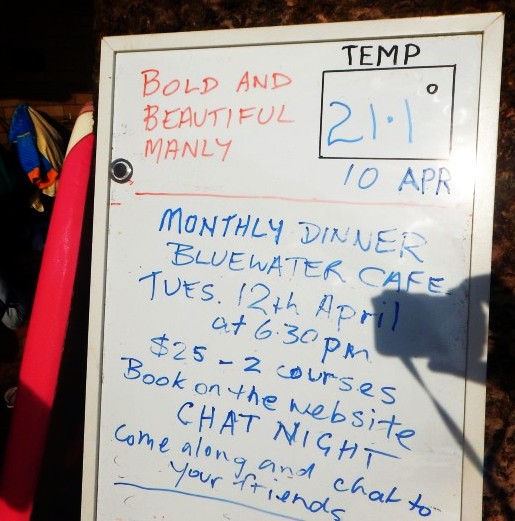 TEMP
BOLD AND
BEAUTIFUL
MANLY
21.1°
10 APR
MONTHLY DINNER
BLUEWATER CAFE
TUES. 12th April
at 6.30pm
$25 - 2 courses
Book on the website
CHAT NIGHT
come along and chat to
your friends